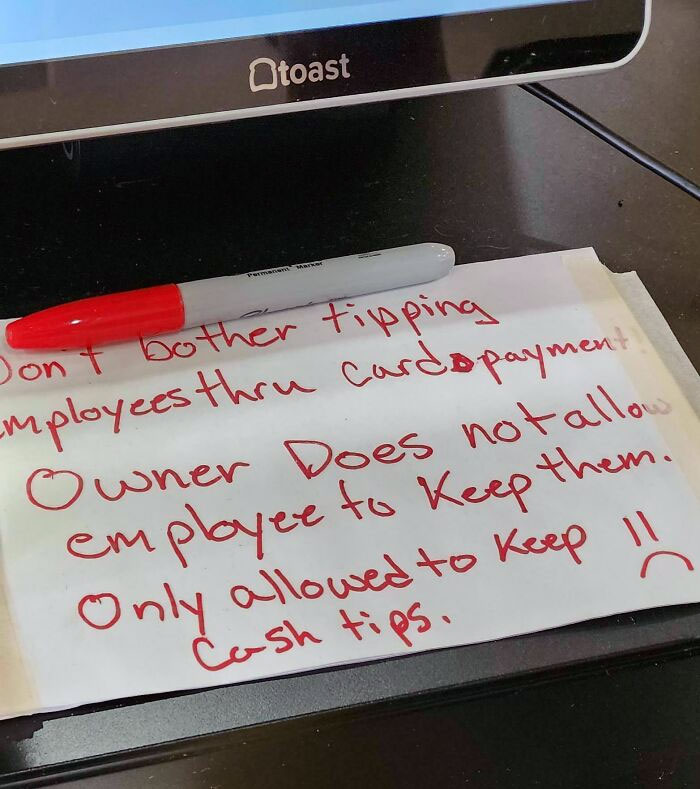 toast
Permanent Marker
Don't bother tipping
employees thru card payment!
Owner Does not allow
employee to Keep them.
Only allowed to Keep
Cash tips.